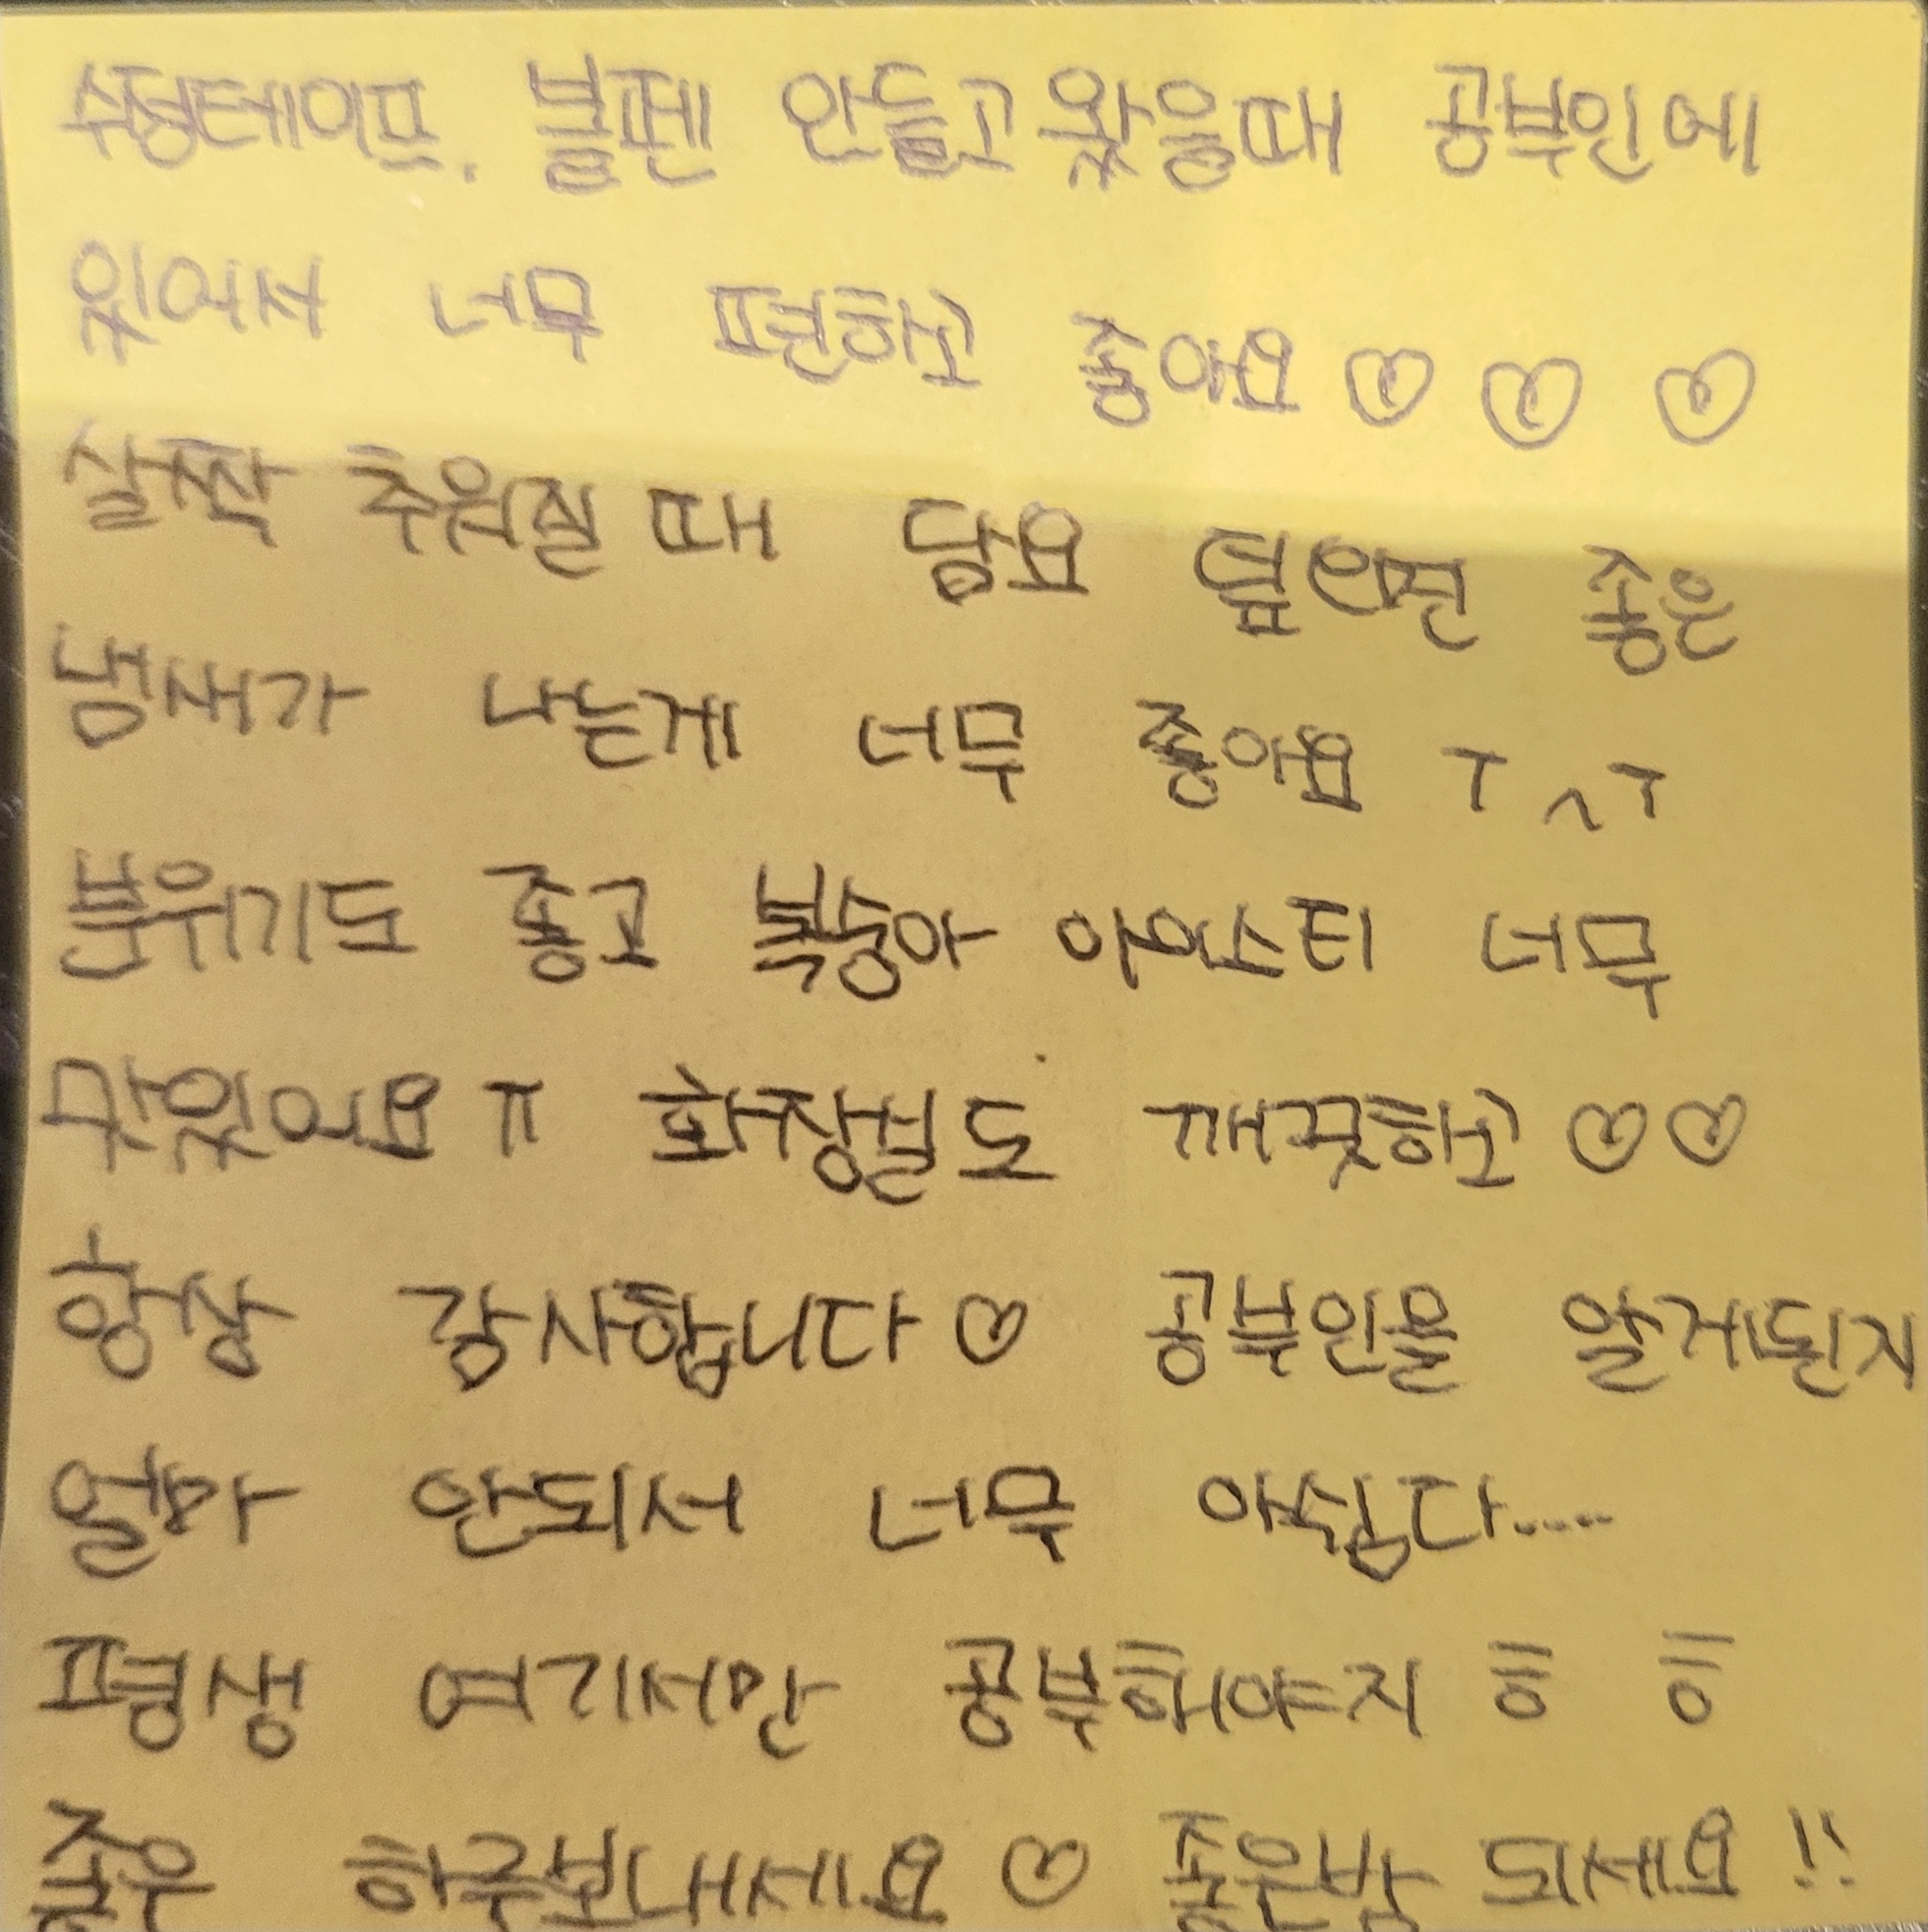 수정테이프, 볼펜 안들고왔을때 공부인에
있어서 너무 편하고 좋아요♡♡♡
살짝 추워질 때 담요 덮으면 좋은
냄새가 나는게 너무 좋아요 ㅜㅅㅜ
분위기도 좋고 복숭아 아이스티 너무
맛있어요 ㅠ 화장실도 깨끗하고♡♡
항상 감사합니다♡ 공부인을 알게된지
얼마 안되서 너무 아쉽다....
평생 여기서만 공부해야지 ㅎ ㅎ
좋은 하루보내세요♡ 좋은밤 되세요!!